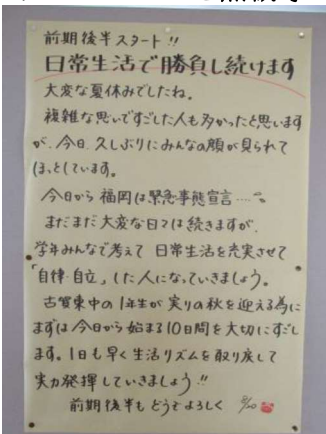 前期後半スタート!!
日常生活で勝負し続けます
大変な夏休みでしたね。
複雑な思いですごした人も多かったと思います
が、今日、久しぶりにみんなの顔が見られて
ほっとしています。
今日から福岡は緊急事態宣言…。
まだまだ大変な日々は続きますが、
学年みんなで考えて 日常生活を充実させて
「自律・自立」した人になっていきましょう。
古賀東中の1年生が実りの秋を迎える為に
まずは今日から始まる10日間を大切にすごし
ます。1日も早く生活リズムを取り戻して
実力発揮していきましょう!!
前期後半もどうぞよろしく 8/20